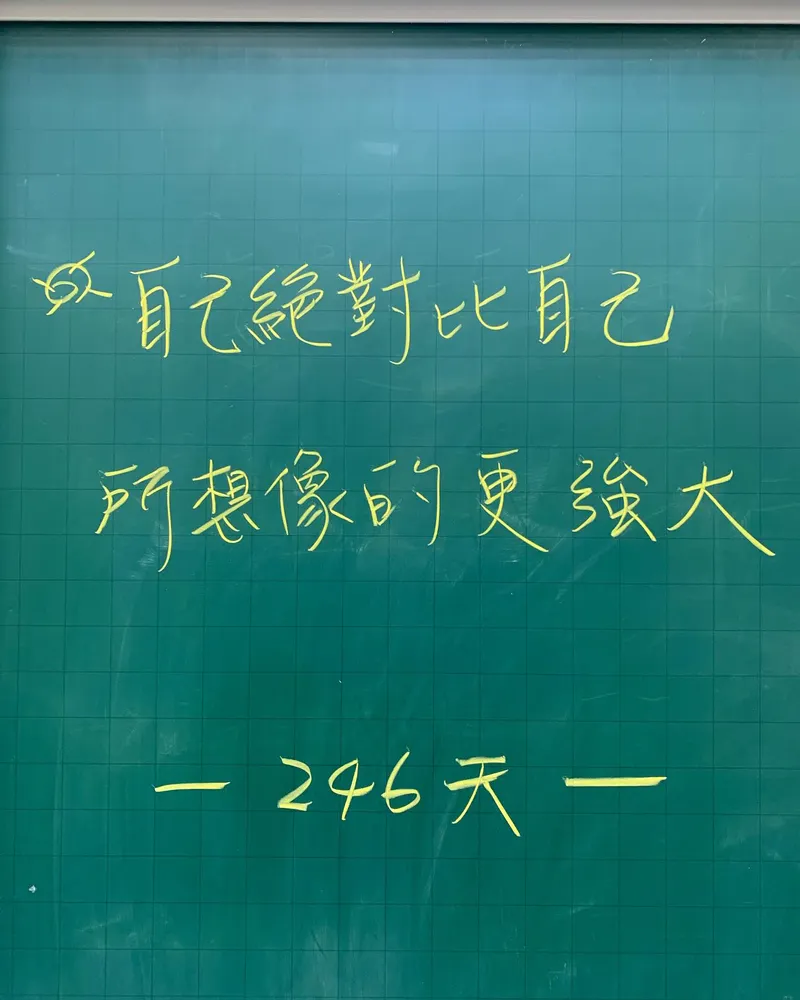 自己絕對比自己
所想像的更強大
— 246天 —